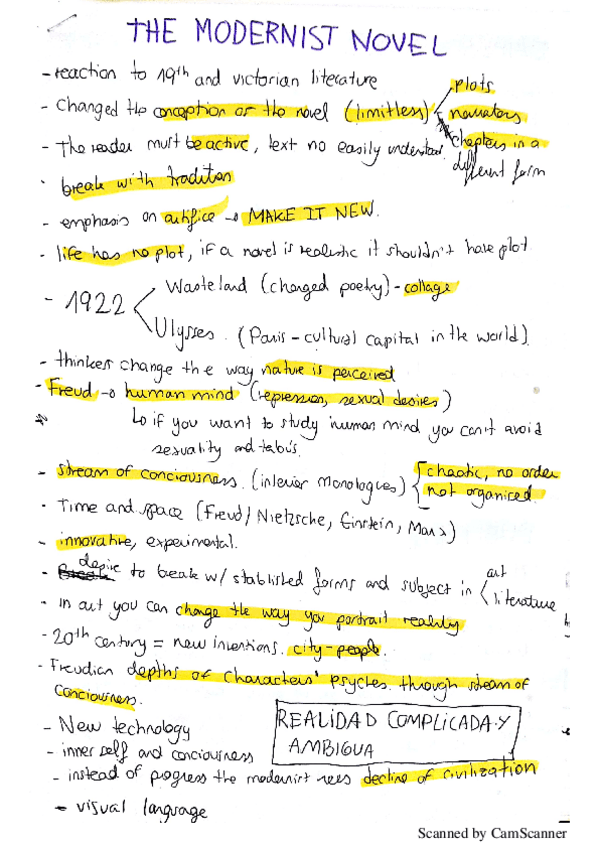 THE MODERNIST NOVEL
- reaction to 19th and victorian literature
- Changed the conception of the novel (limitless)
plots
narrators
chapters in a
different form
- The reader must be active, text no easily understood.
break with tradition
- emphasis on artifice → MAKE IT NEW.
- life has no plot, if a novel is realistic it shouldn't have plot
- 1922
Wasteland (changed poetry) - collage
Ulysses. (Paris - cultural capital in the world)
- thinkers change the way nature is perceived
- Freud → human mind (repression, sexual desires)
↳ if you want to study human mind you can't avoid
sexuality and tabús
- stream of conciousness. (interior monologues)
chaotic, no order
not organiced.
- Time and space (Freud / Nietzsche, Einstein, Marx)
- innovative, experimental.
- desire to break w/ stablished forms and subject in
art
literature
- In art you can change the way you portrait reality
- 20th century = new inventions. city-people.
- Freudian depths of characters' psyches through stream of
conciousness.
- New technology
- inner self and conciousness
REALIDAD COMPLICADA Y
AMBIGUA
- instead of progress the modernist sees decline of civilization
- visual language
Scanned by CamScanner